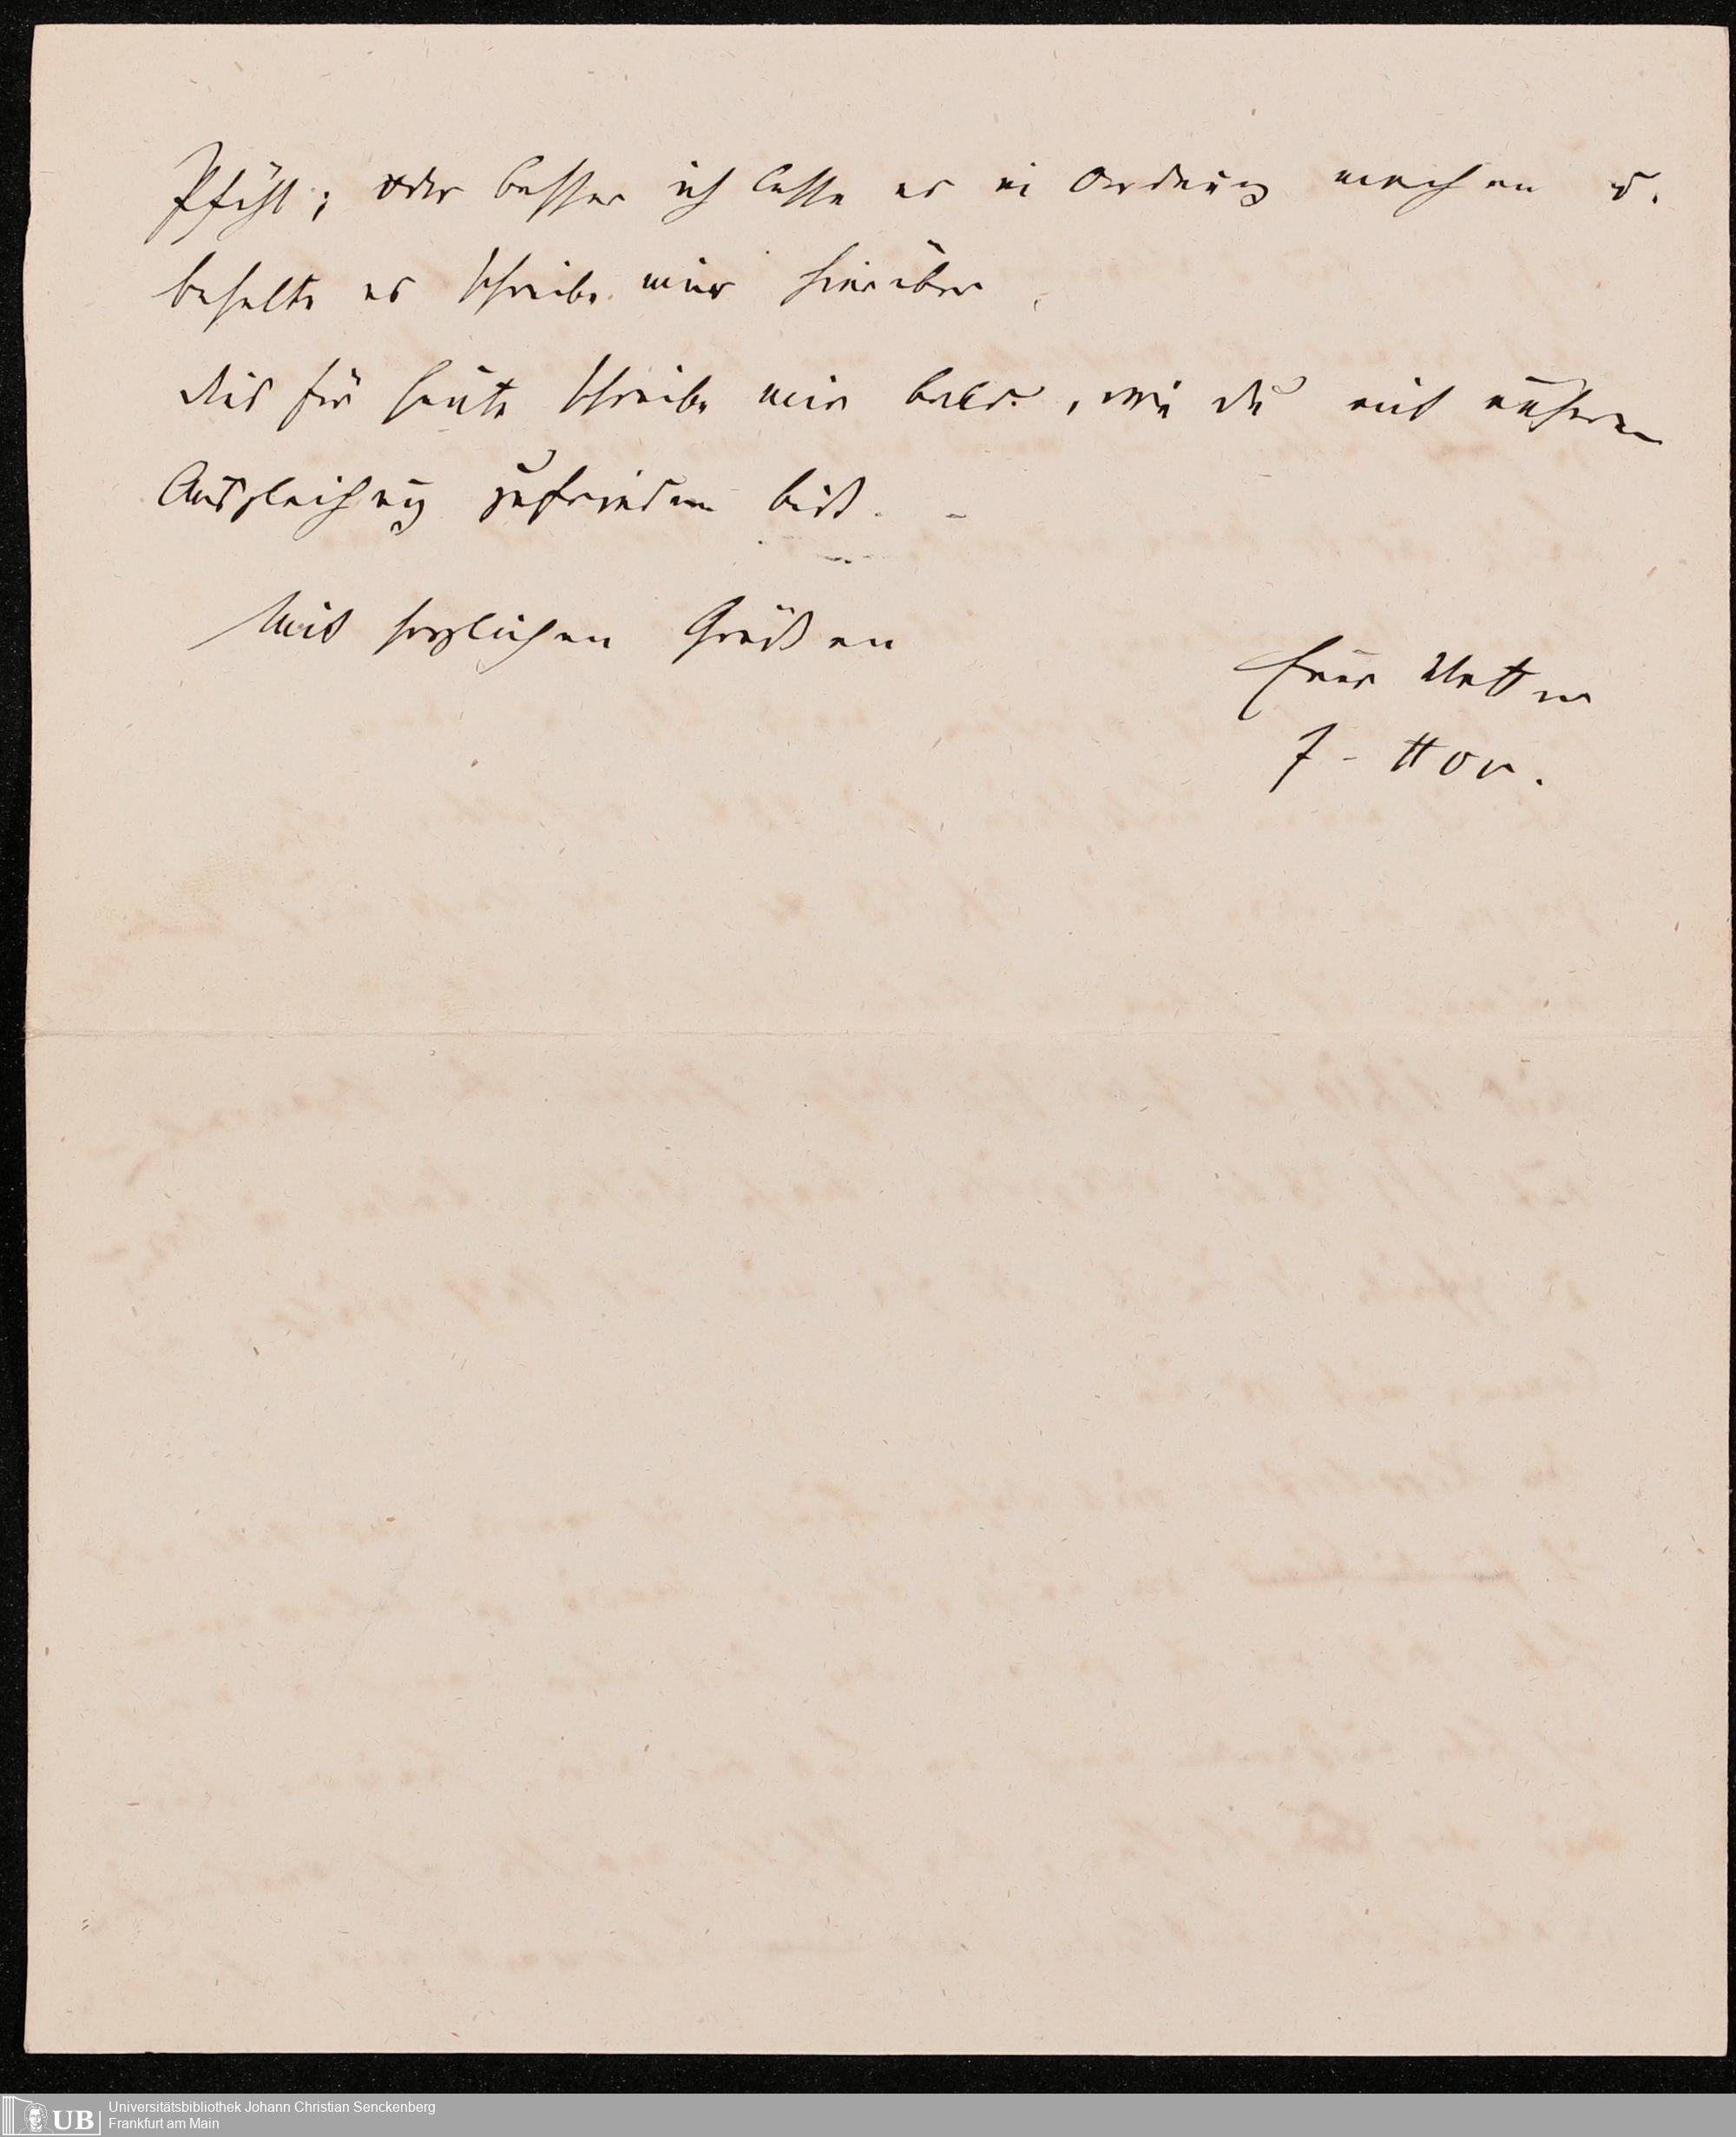 oder besser ich lasse es in Ordnung machen u.
behalte es schreibe mir hierüber
dies für heute schreibe mir bald, wie du mit unserer
Ausgleichung zufrieden bist. -
Mit herzlichen Grüßen
Euer Vetter
F. Hor.
UB
Universitätsbibliothek Johann Christian Senckenberg
Frankfurt am Main